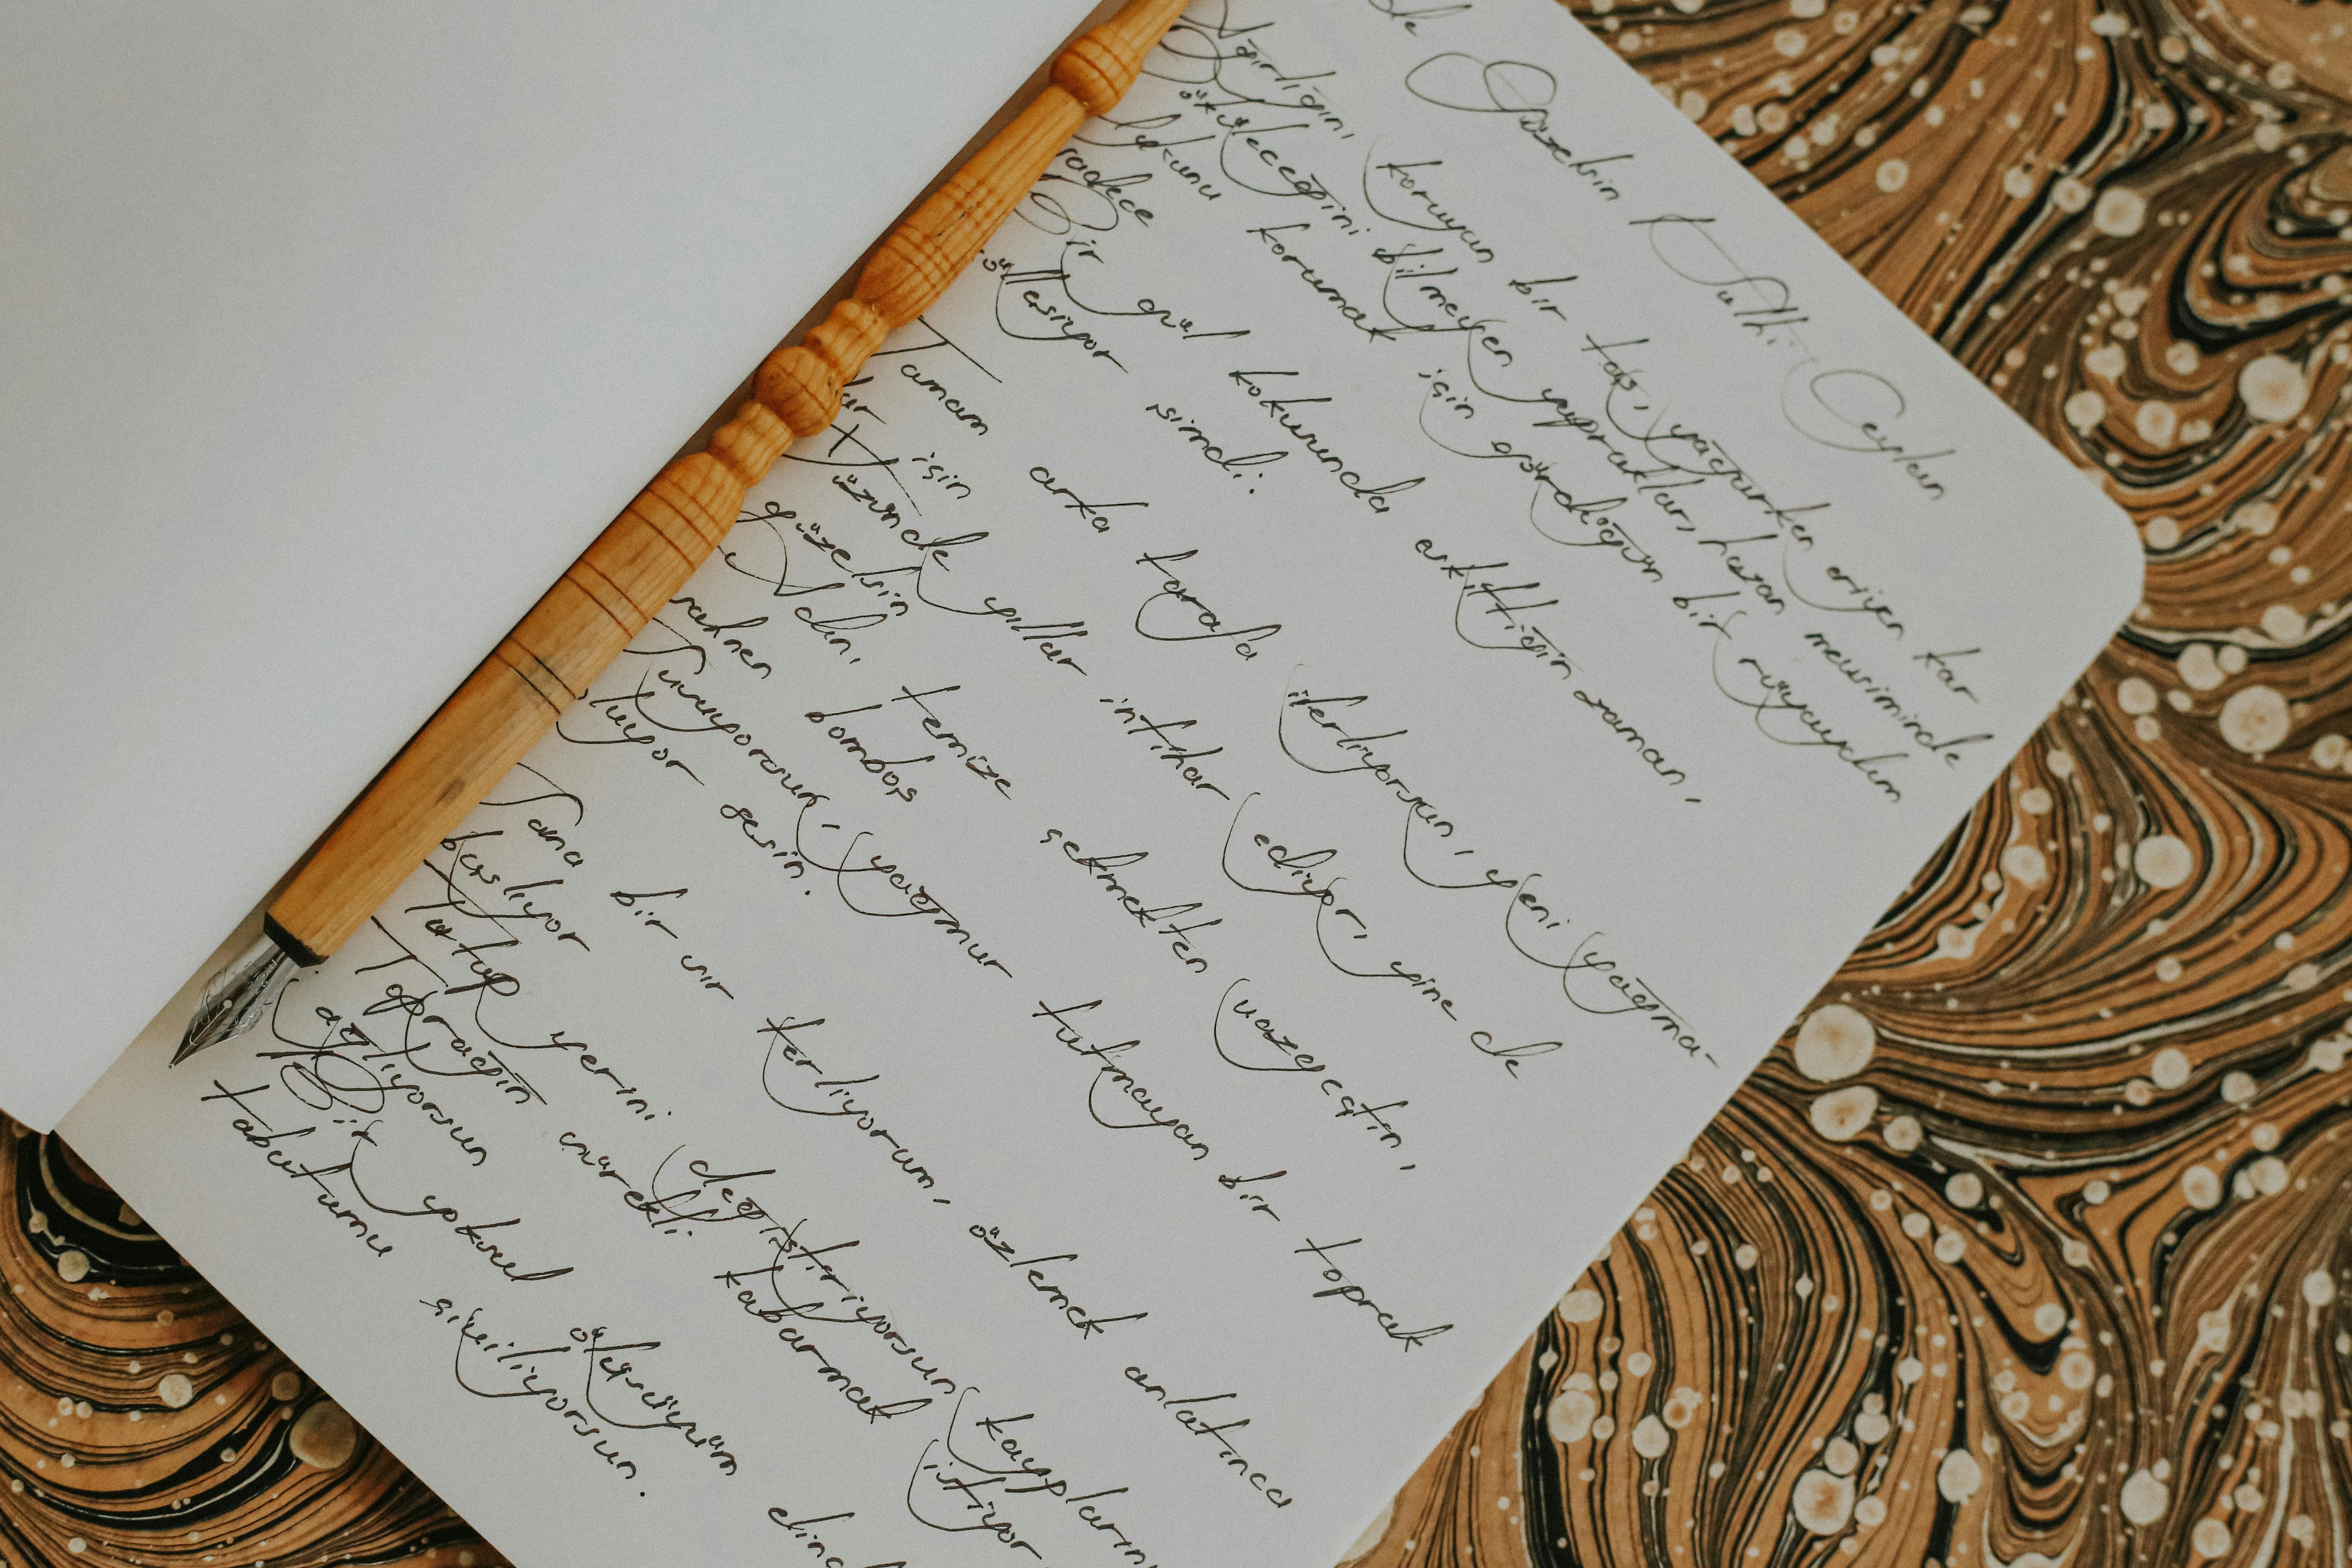 de Güzelsin Fethi Ceylan
Ağırlığını koruyan bir taş, yağarken eriyen kar
döküleceğini bilmeyen yaprakları hazan mevsiminde
Uykunu korumak için gördüğün bir rüyaydım
sadece
Bir gül kokusunda eskittiğin zaman,
küllesiyor simdi.
Tamam arka tarafa ilerliyorsun, yeni yağma-
lar için
Yüzünde yıllar intihar ediyor, yine de
güzelsin
Adını temize çekmekten vazgeçtin,
sahnen bomboş
Susuyorsun, yağmur tutmayan bir toprak
oluyor sesin.
Sana bir sır terliyorum, özlemek anlatınca
başlıyor
Tutup yerini değiştiriyorsun kayıpların
Toprağın sürekli kabarmak istiyor
ağlıyorsun
Bir yoksul ölüsüyüm elinde
tabutumu siviliyorsun.